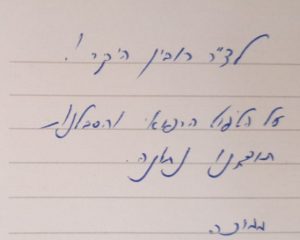 לד"ר רובין היקר!
על הטיפול הרפואי והסבלנות
תודתנו נתונה.